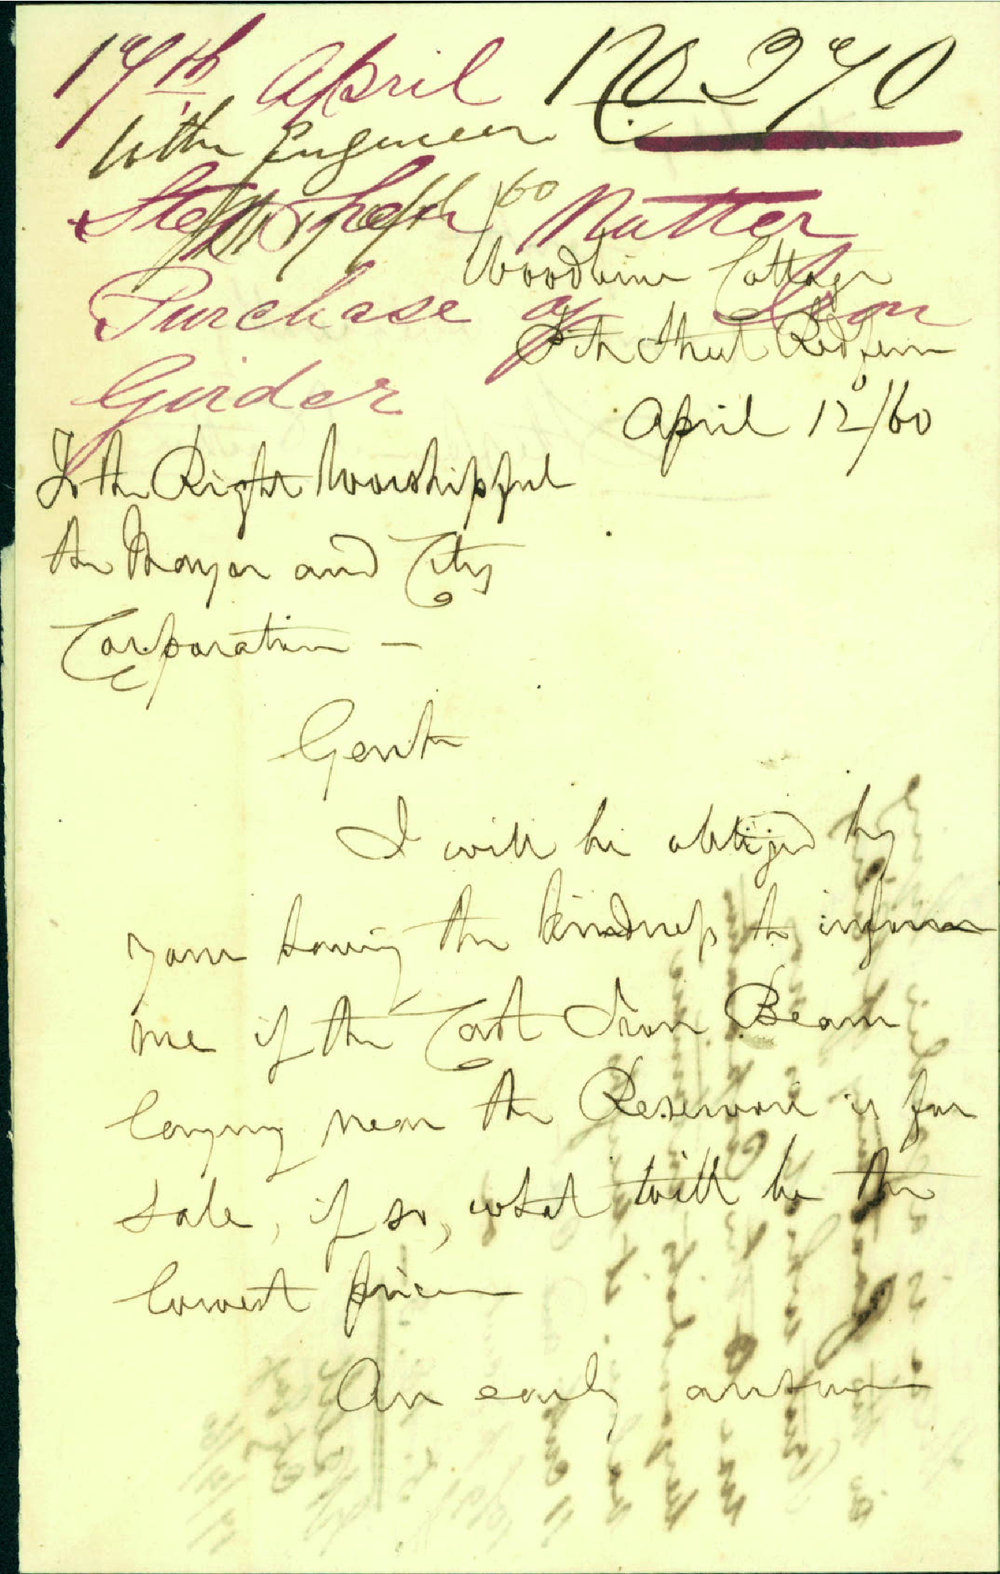 17th April No 270
To the Engineer
Stephen Rutter
17/4/60
Woodbine Cottage
Purchase of Iron
5th Street Redfern
Girder
April 12/60
To the Right Worshipful
the Mayor and City
Corporation —
Gentn
I will be obliged by
your having the kindness to inform
me if the Cast Iron Beam
laying near the Reservoir is for
sale, if so, what will be the
lowest price
An early answer